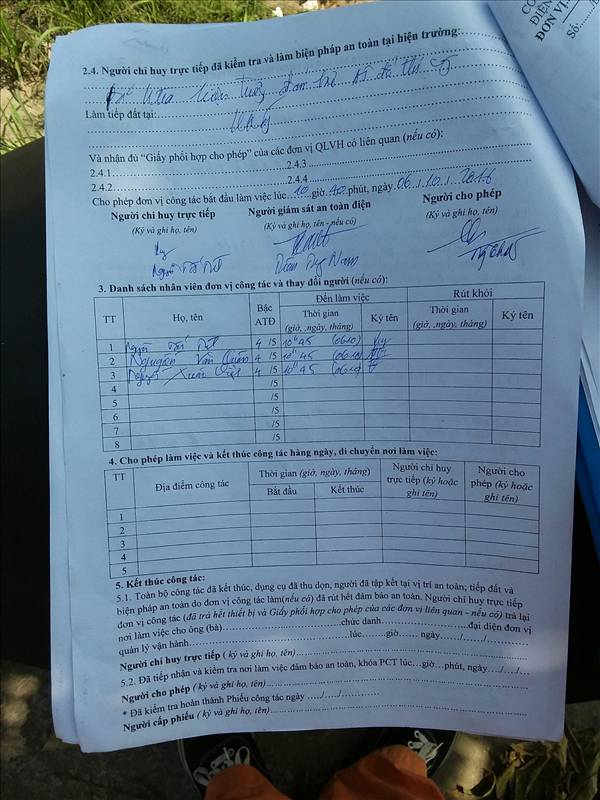 CÔ
ĐIỆN
ĐƠN VỊ
Số:
2.4. Người chỉ huy trực tiếp đã kiểm tra và làm biện pháp an toàn tại hiện trường:
Làm tiếp đất tại:
Và nhận đủ “Giấy phối hợp cho phép” của các đơn vị QLVH có liên quan (nếu có):
2.4.1 2.4.3
2.4.2 2.4.4
Cho phép đơn vị công tác bắt đầu làm việc lúc 10 giờ 40 phút, ngày 06 / 10 / 2016
Người chỉ huy trực tiếp Người giám sát an toàn điện Người cho phép
(Ký và ghi họ, tên) (Ký và ghi họ, tên - nếu có) (Ký và ghi họ, tên)
3. Danh sách nhân viên đơn vị công tác và thay đổi người (nếu có):
TT Họ, tên Bậc ATĐ Đến làm việc Rút khỏi
Thời gian (giờ, ngày, tháng) Ký tên Thời gian (giờ, ngày, tháng) Ký tên
1 4 /5 10h45 (06.10)
2 Nguyễn Văn 4 /5 10h45 (06.10)
3 Nguyễn Xuân 4 /5 10h45 (06.10)
4 /5
5 /5
6 /5
7 /5
8 /5
4. Cho phép làm việc và kết thúc công tác hàng ngày, di chuyển nơi làm việc:
TT Địa điểm công tác Thời gian (giờ, ngày, tháng) Người chỉ huy trực tiếp (ký hoặc ghi tên) Người cho phép (ký hoặc ghi tên)
Bắt đầu Kết thúc
1
2
3
4
5
5. Kết thúc công tác:
5.1. Toàn bộ công tác đã kết thúc, dụng cụ đã thu dọn, người đã tập kết tại vị trí an toàn; tiếp đất và
biện pháp an toàn do đơn vị công tác làm(nếu có) đã rút hết đảm bảo an toàn. Người chỉ huy trực tiếp
đơn vị công tác (đã trả hết thiết bị và Giấy phối hợp cho phép của các đơn vị liên quan - nếu có) trả lại
nơi làm việc cho ông (bà)..........chức danh..........đại diện đơn vị
quản lý vận hành..........lúc.......giờ...... ngày....../....../..........
Người chỉ huy trực tiếp ( ký và ghi họ, tên)..........
5.2. Đã tiếp nhận và kiểm tra nơi làm việc đảm bảo an toàn, khóa PCT lúc...giờ...phút, ngày..../..../....
Người cho phép ( ký và ghi họ, tên)..........
* Đã kiểm tra hoàn thành Phiếu công tác ngày ..../..../..........
Người cấp phiếu ( ký và ghi họ, tên)..........